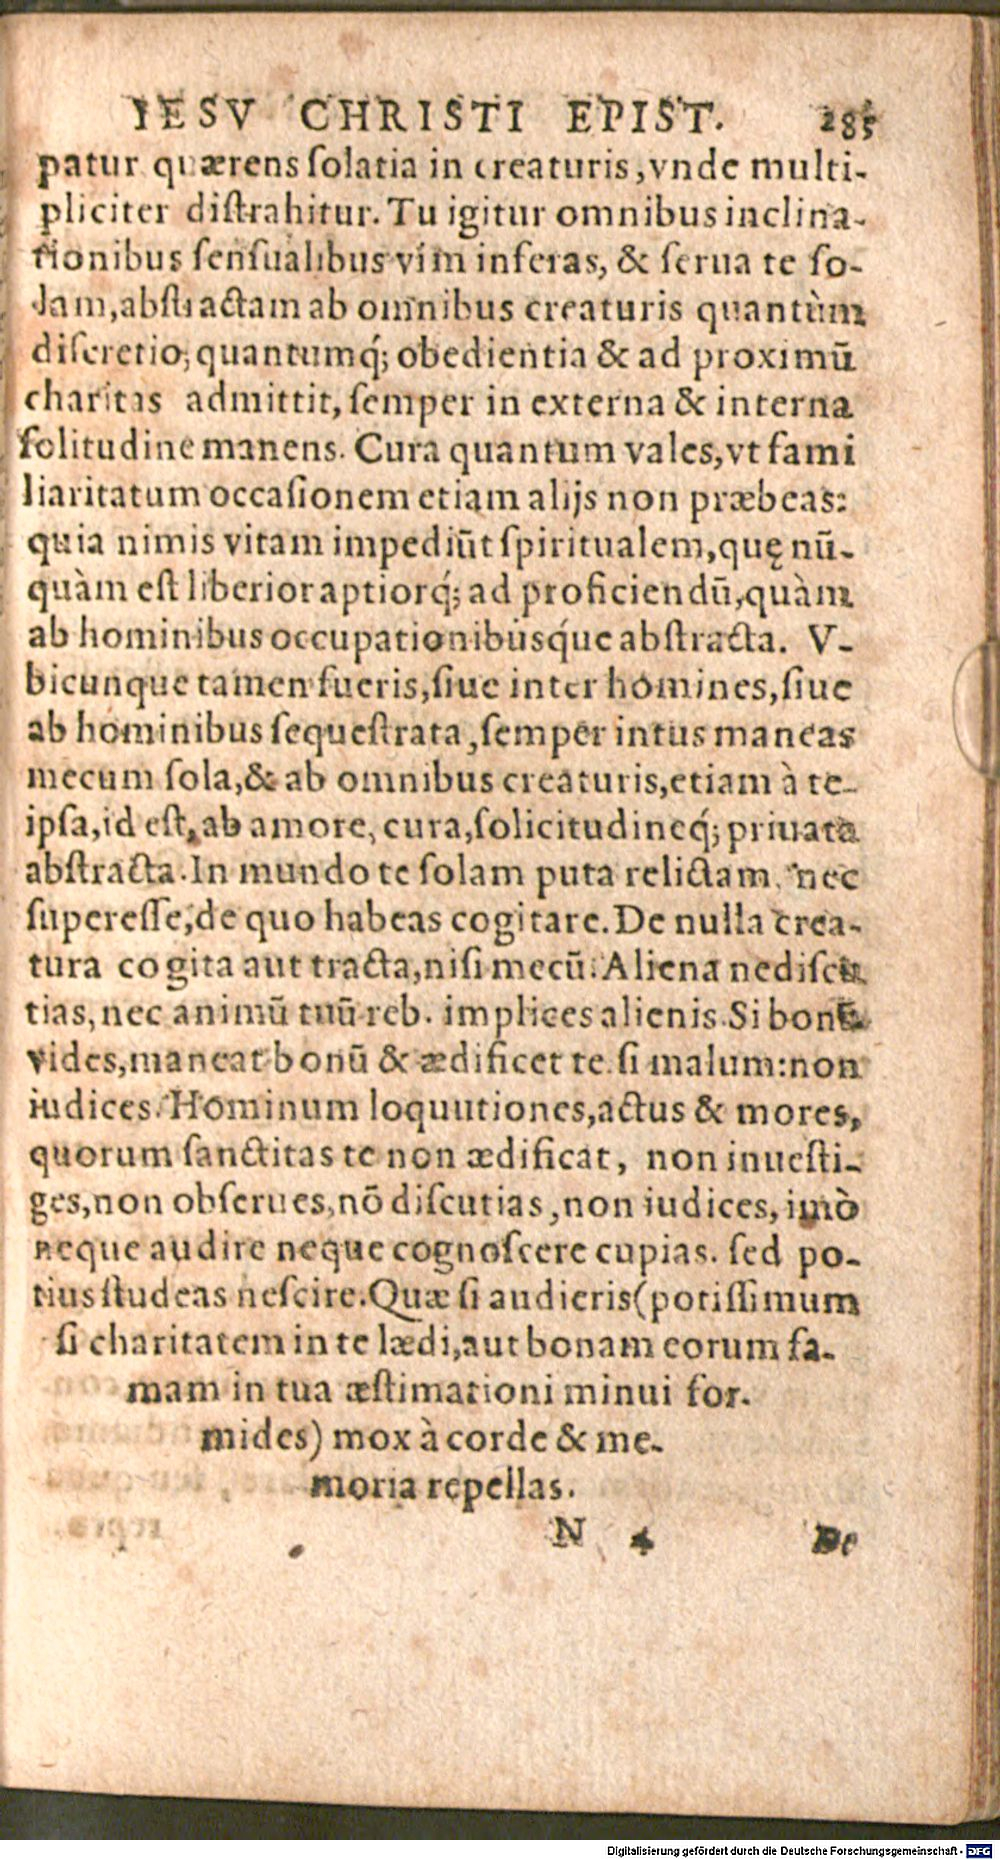 IESV CHRISTI EPIST. 285
patur quærens ſolatia in creaturis, vnde multi-
pliciter diſtrahitur. Tu igitur omnibus inclina-
tionibus ſenſualibus vim inferas, & ſerua te ſo-
lam, abſtractam ab omnibus creaturis quantùm
diſcretio, quantumq́; obedientia & ad proximū
charitas admittit, ſemper in externa & interna
ſolitudine manens. Cura quantum vales, vt fami
liaritatum occaſionem etiam alijs non præbeas:
quia nimis vitam impediūt ſpiritualem, quę nū-
quàm eſt liberior aptiorq́; ad proficiendū, quàm
ab hominibus occupationibusq́ue abſtracta. V-
bicunque tamen fueris, ſiue inter homines, ſiue
ab hominibus ſequeſtrata, ſemper intus maneas
mecum ſola, & ab omnibus creaturis, etiam à te-
ipſa, id eſt, ab amore, cura, ſolicitudineq́; priuata
abſtracta. In mundo te ſolam puta relictam, nec
ſupereſſe, de quo habeas cogitare. De nulla crea-
tura cogita aut tracta, niſi mecū. Aliena ne diſcu
tias, nec animū tuū reb. implices alienis. Si bonū
vides, maneat bonū & ædificet te. ſi malum: non
iudices. Hominum loquutiones, actus & mores,
quorum ſanctitas te non ædificat, non inueſti-
ges, non obſerues, nō diſcutias, non iudices, imò
neque audire neque cognoſcere cupias. ſed po-
tius ſtudeas neſcire. Quæ ſi audieris (potiſſimum
ſi charitatem in te lædi, aut bonam eorum fa-
mam in tua æſtimationi minui for-
mides) mox à corde & me-
moria repellas.
N 4 De
Digitalisierung gefördert durch die Deutsche Forschungsgemeinschaft - DFG